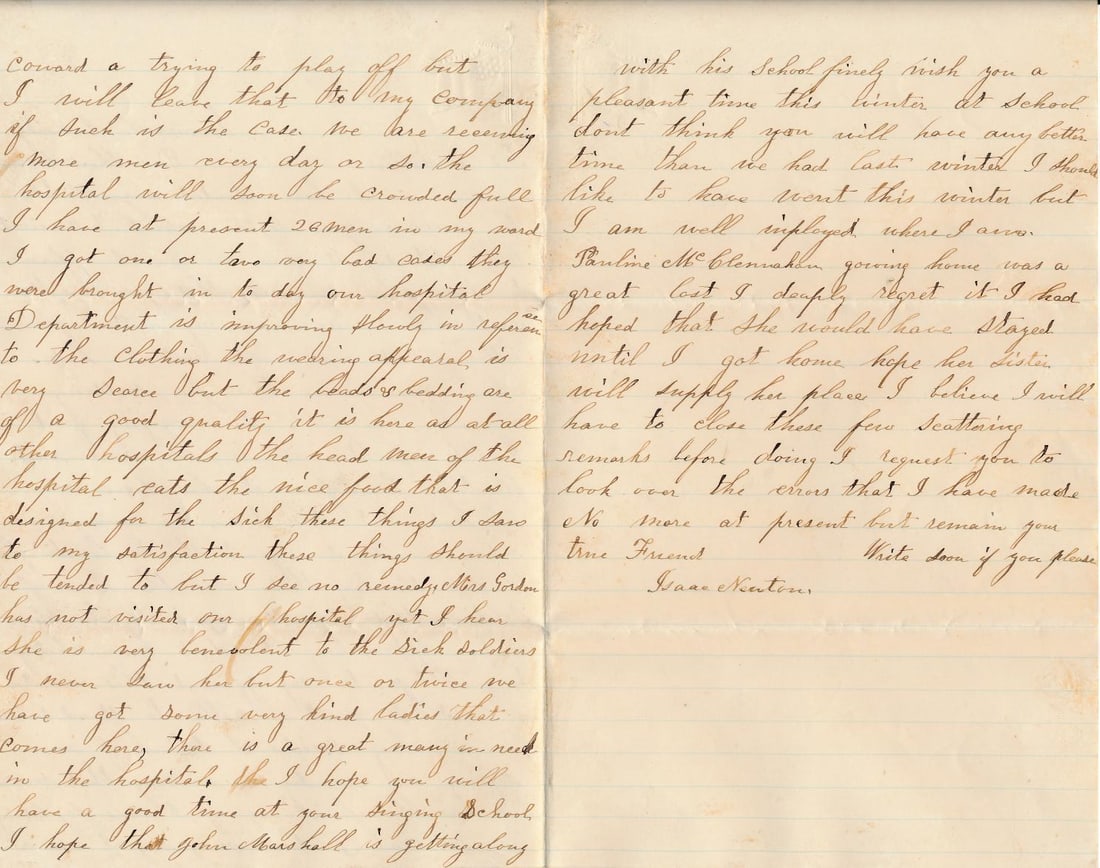 coward a trying to play off but
I will leave that to my company
if such is the case. we are receiving
more men every day or so. the
hospital will soon be crowded full
I have at present 26 men in my ward
I got one or two very bad cases they
were brought in to day our hospital
Department is improving slowly in referense
to the clothing the wearing appearal is
very scarce but the beads & bedding are
of a good quality it is here as at all
other hospitals the head men of the
hospital eats the nice food that is
designed for the sick these things I saw
to my satisfaction these things should
be tended to but I see no remedy, Mrs Gordon
has not visited our hospital yet I hear
she is very benevolent to the sick soldiers
I never saw her but once or twice we
have got some very kind ladies that
comes here, there is a great many in need
in the hospital. the I hope you will
have a good time at your singing School
I hope that John Marshall is getting along
with his school finely wish you a
pleasant time this winter at school
dont think you will have any better
time than we had last winter I should
like to have went this winter but
I am well inployed where I am.
Pauline McClennahan gowing home was a
great lost I deaply regret it I had
hoped that she would have stayed
until I got home hope her sister
will supply her place I believe I will
have to close these few scattering
remarks before doing I request you to
look over the errors that I have made
No more at present but remain your
true Friend Write soon if you please
Isaac Newton.